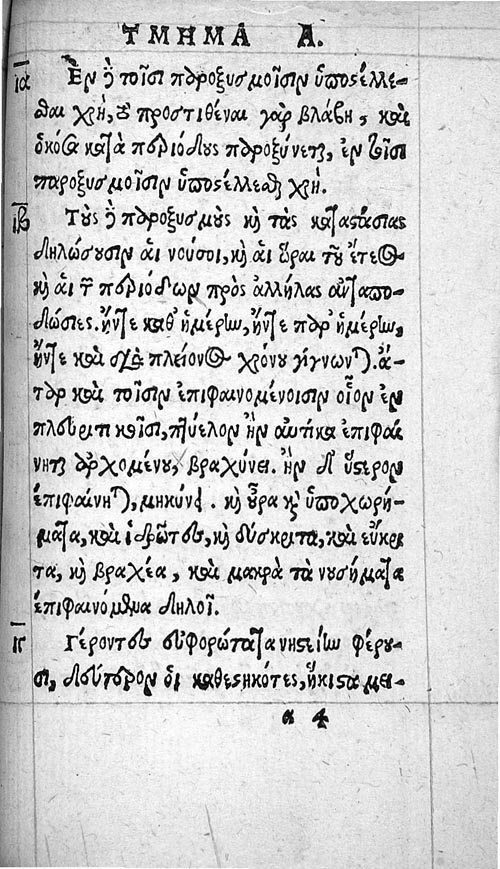 ΤΜΗΜΑ Α.
ια Ἐν δὲ τοῖσι παροξυσμοῖσιν ὑποστέλλε-
σθαι χρὴ, τὸ προστιθέναι γὰρ βλάβη, καὶ
ὁκόσα κατὰ περιόδους παροξύνεται, ἐν τοῖσι
παροξυσμοῖσιν ὑποστέλλεσθαι χρή.
ιβ Τοὺς δὲ παροξυσμοὺς καὶ τὰς καταστάσιας
δηλώσουσιν αἱ νοῦσοι, καὶ αἱ ὧραι τοῦ ἔτεος
καὶ αἱ τῶν περιόδων πρὸς ἀλλήλας ἀνταπο-
δώσιες. ἤντε καθ' ἡμέρην, ἤντε παρ' ἡμέρην,
ἤντε καὶ διὰ πλείονος χρόνου γίγνωνται. ἀ-
τὰρ καὶ τοῖσιν ἐπιφαινομένοισιν οἷον ἐν
πλευριτικοῖσι, πτύελον ἢν αὐτίκα ἐπιφαί
νηται ἀρχομένου, βραχύνει. ἢν δ' ὕστερον
ἐπιφαίνηται, μηκύνει. καὶ οὖρα καὶ ὑποχωρή-
ματα, καὶ ἱδρῶτες, καὶ δύσκριτα, καὶ εὔκρι
τα, καὶ βραχέα, καὶ μακρὰ τὰ νουσήματα
ἐπιφαινόμενα δηλοῖ.
ιγ Γέροντες εὐφορώτατα νηστείην φέρου-
σι, δεύτερον οἱ καθεστηκότες, ἥκιστα μει-
α 4